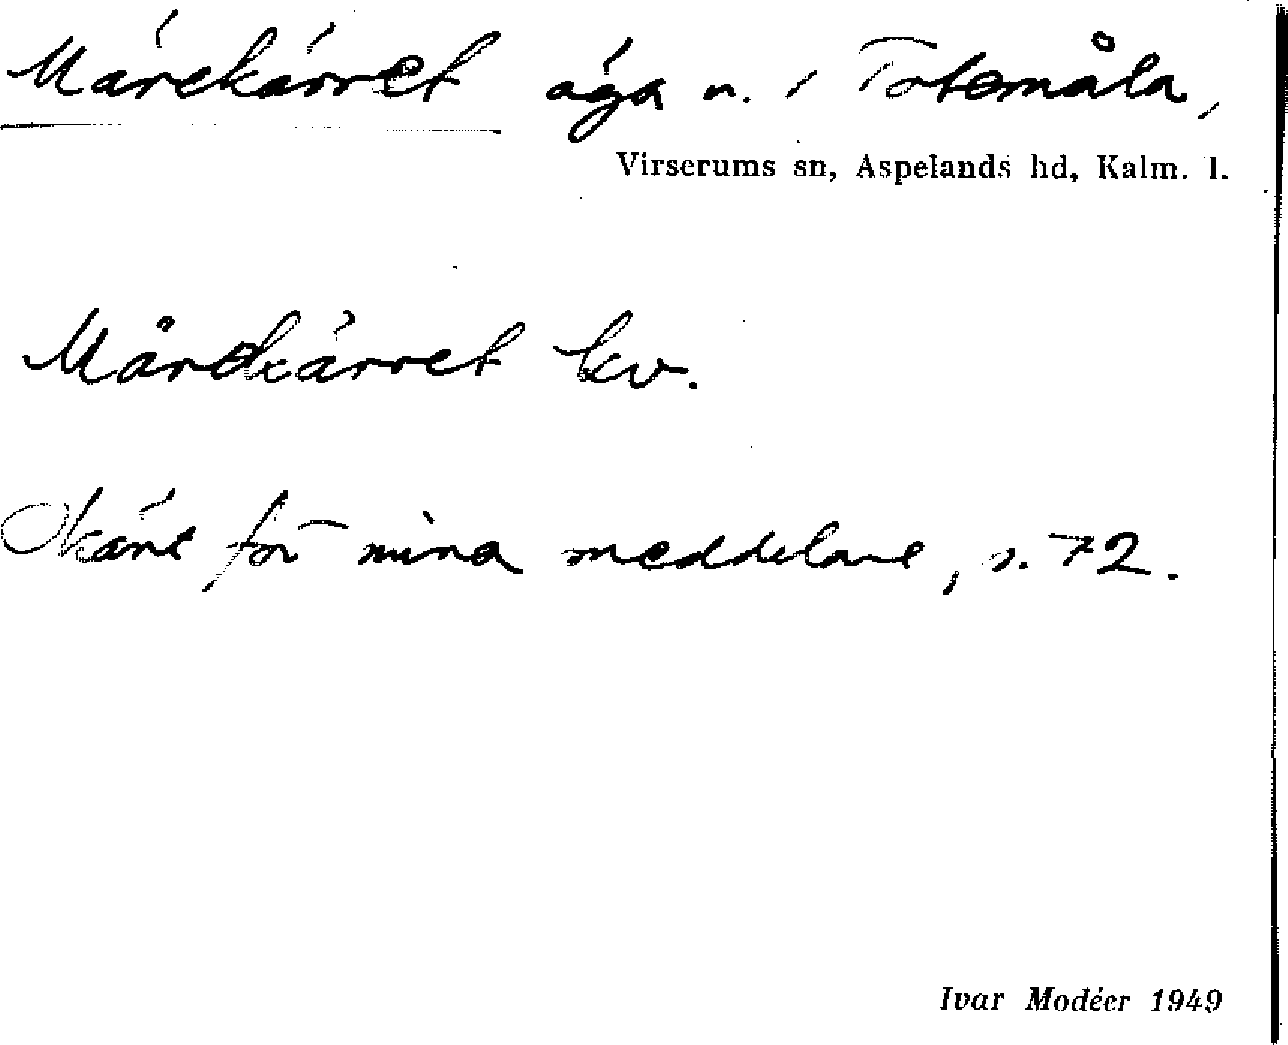 Märekärret äga n. i Totemåla,
Virserums sn, Aspelands hd, Kalm. l.
Mårdkärret kv.
Okänt för mina meddelare, s. 72.
Ivar Modéer 1949